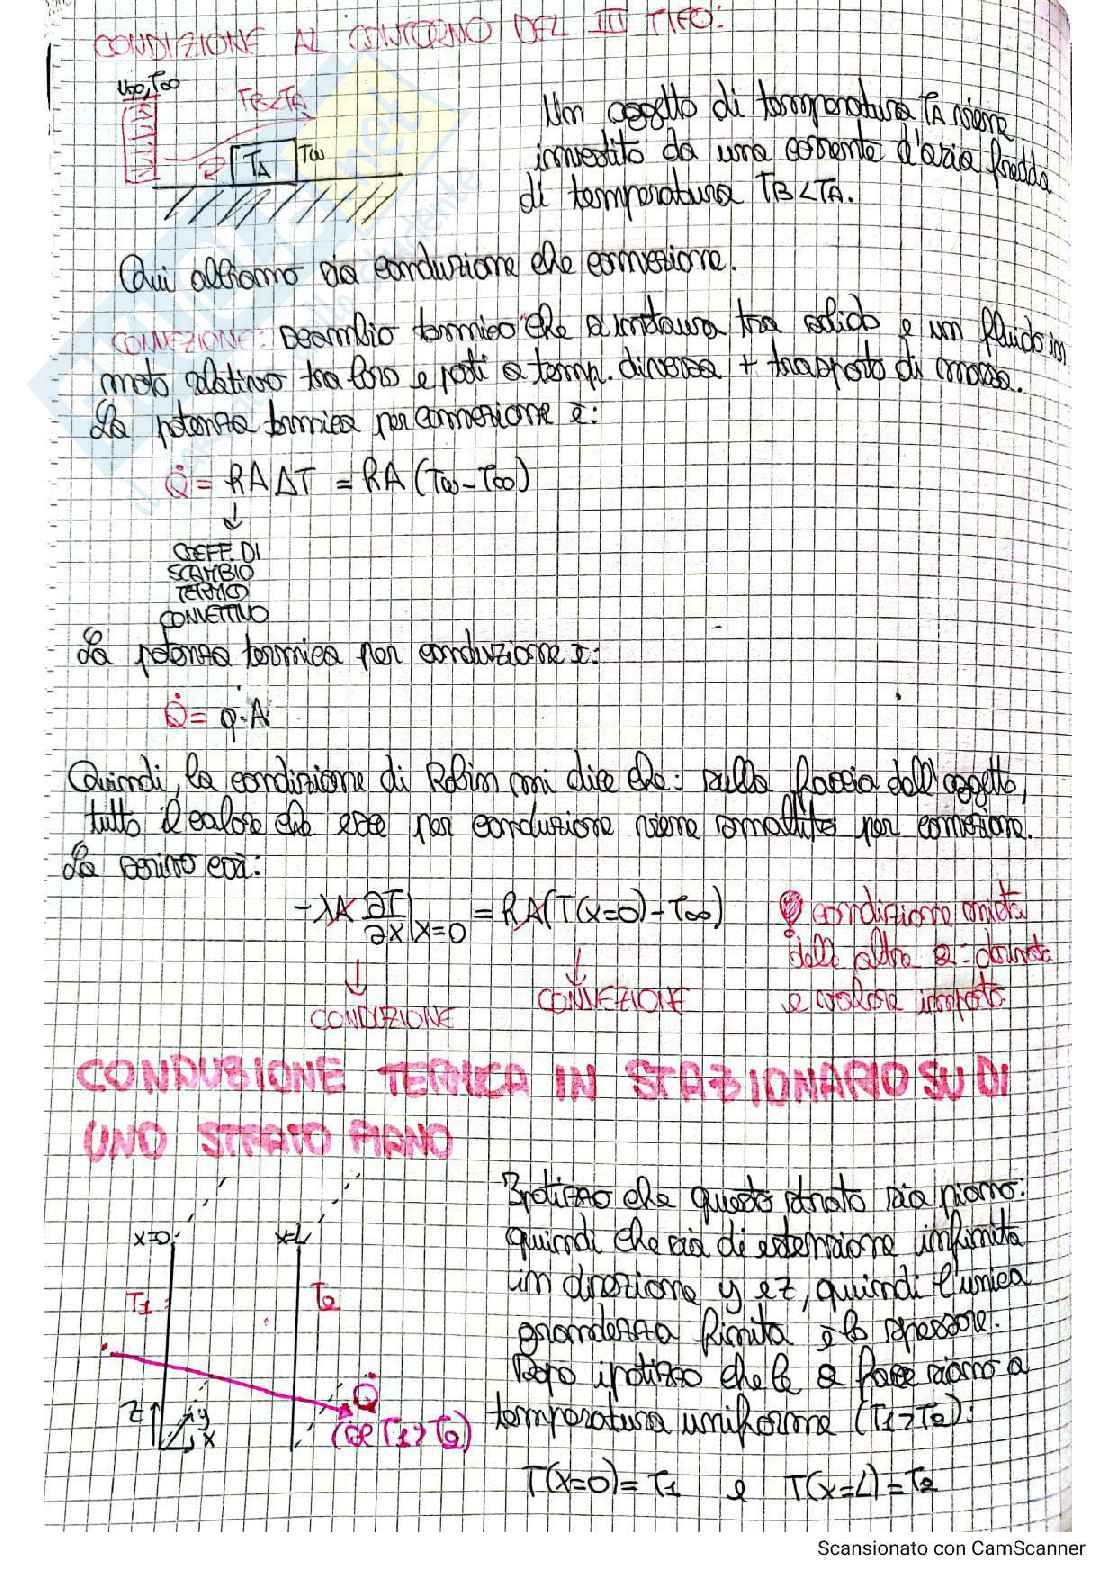 CONDIZIONE AL CONTORNO DEL III TIPO:
U∞,T∞
TB<TA
TA
Tω
Un oggetto di temperatura TA viene
investito da una corrente d'aria fredda
di temperatura TB<TA.
Qui abbiamo sia conduzione che convezione.
CONVEZIONE: scambio termico che si instaura tra solido e un fluido in
moto relativo tra loro e posti a temp. diversa + trasporto di massa.
La potenza termica per convezione è:
Q̇ = hAΔT = hA(Tω-T∞)
↓
COEFF. DI
SCAMBIO
TERMICO
CONVETTIVO
La potenza termica per conduzione è:
Q̇ = q̇·A
Quindi, la condizione di Robin mi dice che: sulla faccia dell'oggetto,
tutto il calore che esce per conduzione viene smaltito per convezione.
La scrivo così:
-λA ∂T/∂x|x=0 = hA(T(x=0)-T∞)
condizione mista
delle altre 2: derivata
e valore imposto
CONDUZIONE
CONVEZIONE
CONDUZIONE TERMICA IN STAZIONARIO SU DI
UNO STRATO PIANO
x=0
x=L
T1
T2
Q̇
(SE T1>T2)
z
y
x
Ipotizzo che questo strato sia piano:
quindi che sia di estensione infinita
in direzione y e z, quindi l'unica
grandezza finita è lo spessore.
Dopo ipotizzo che le 2 facce siano a
temperatura uniforme (T1>T2):
T(x=0)=T1 e T(x=L)=T2
Scansionato con CamScanner